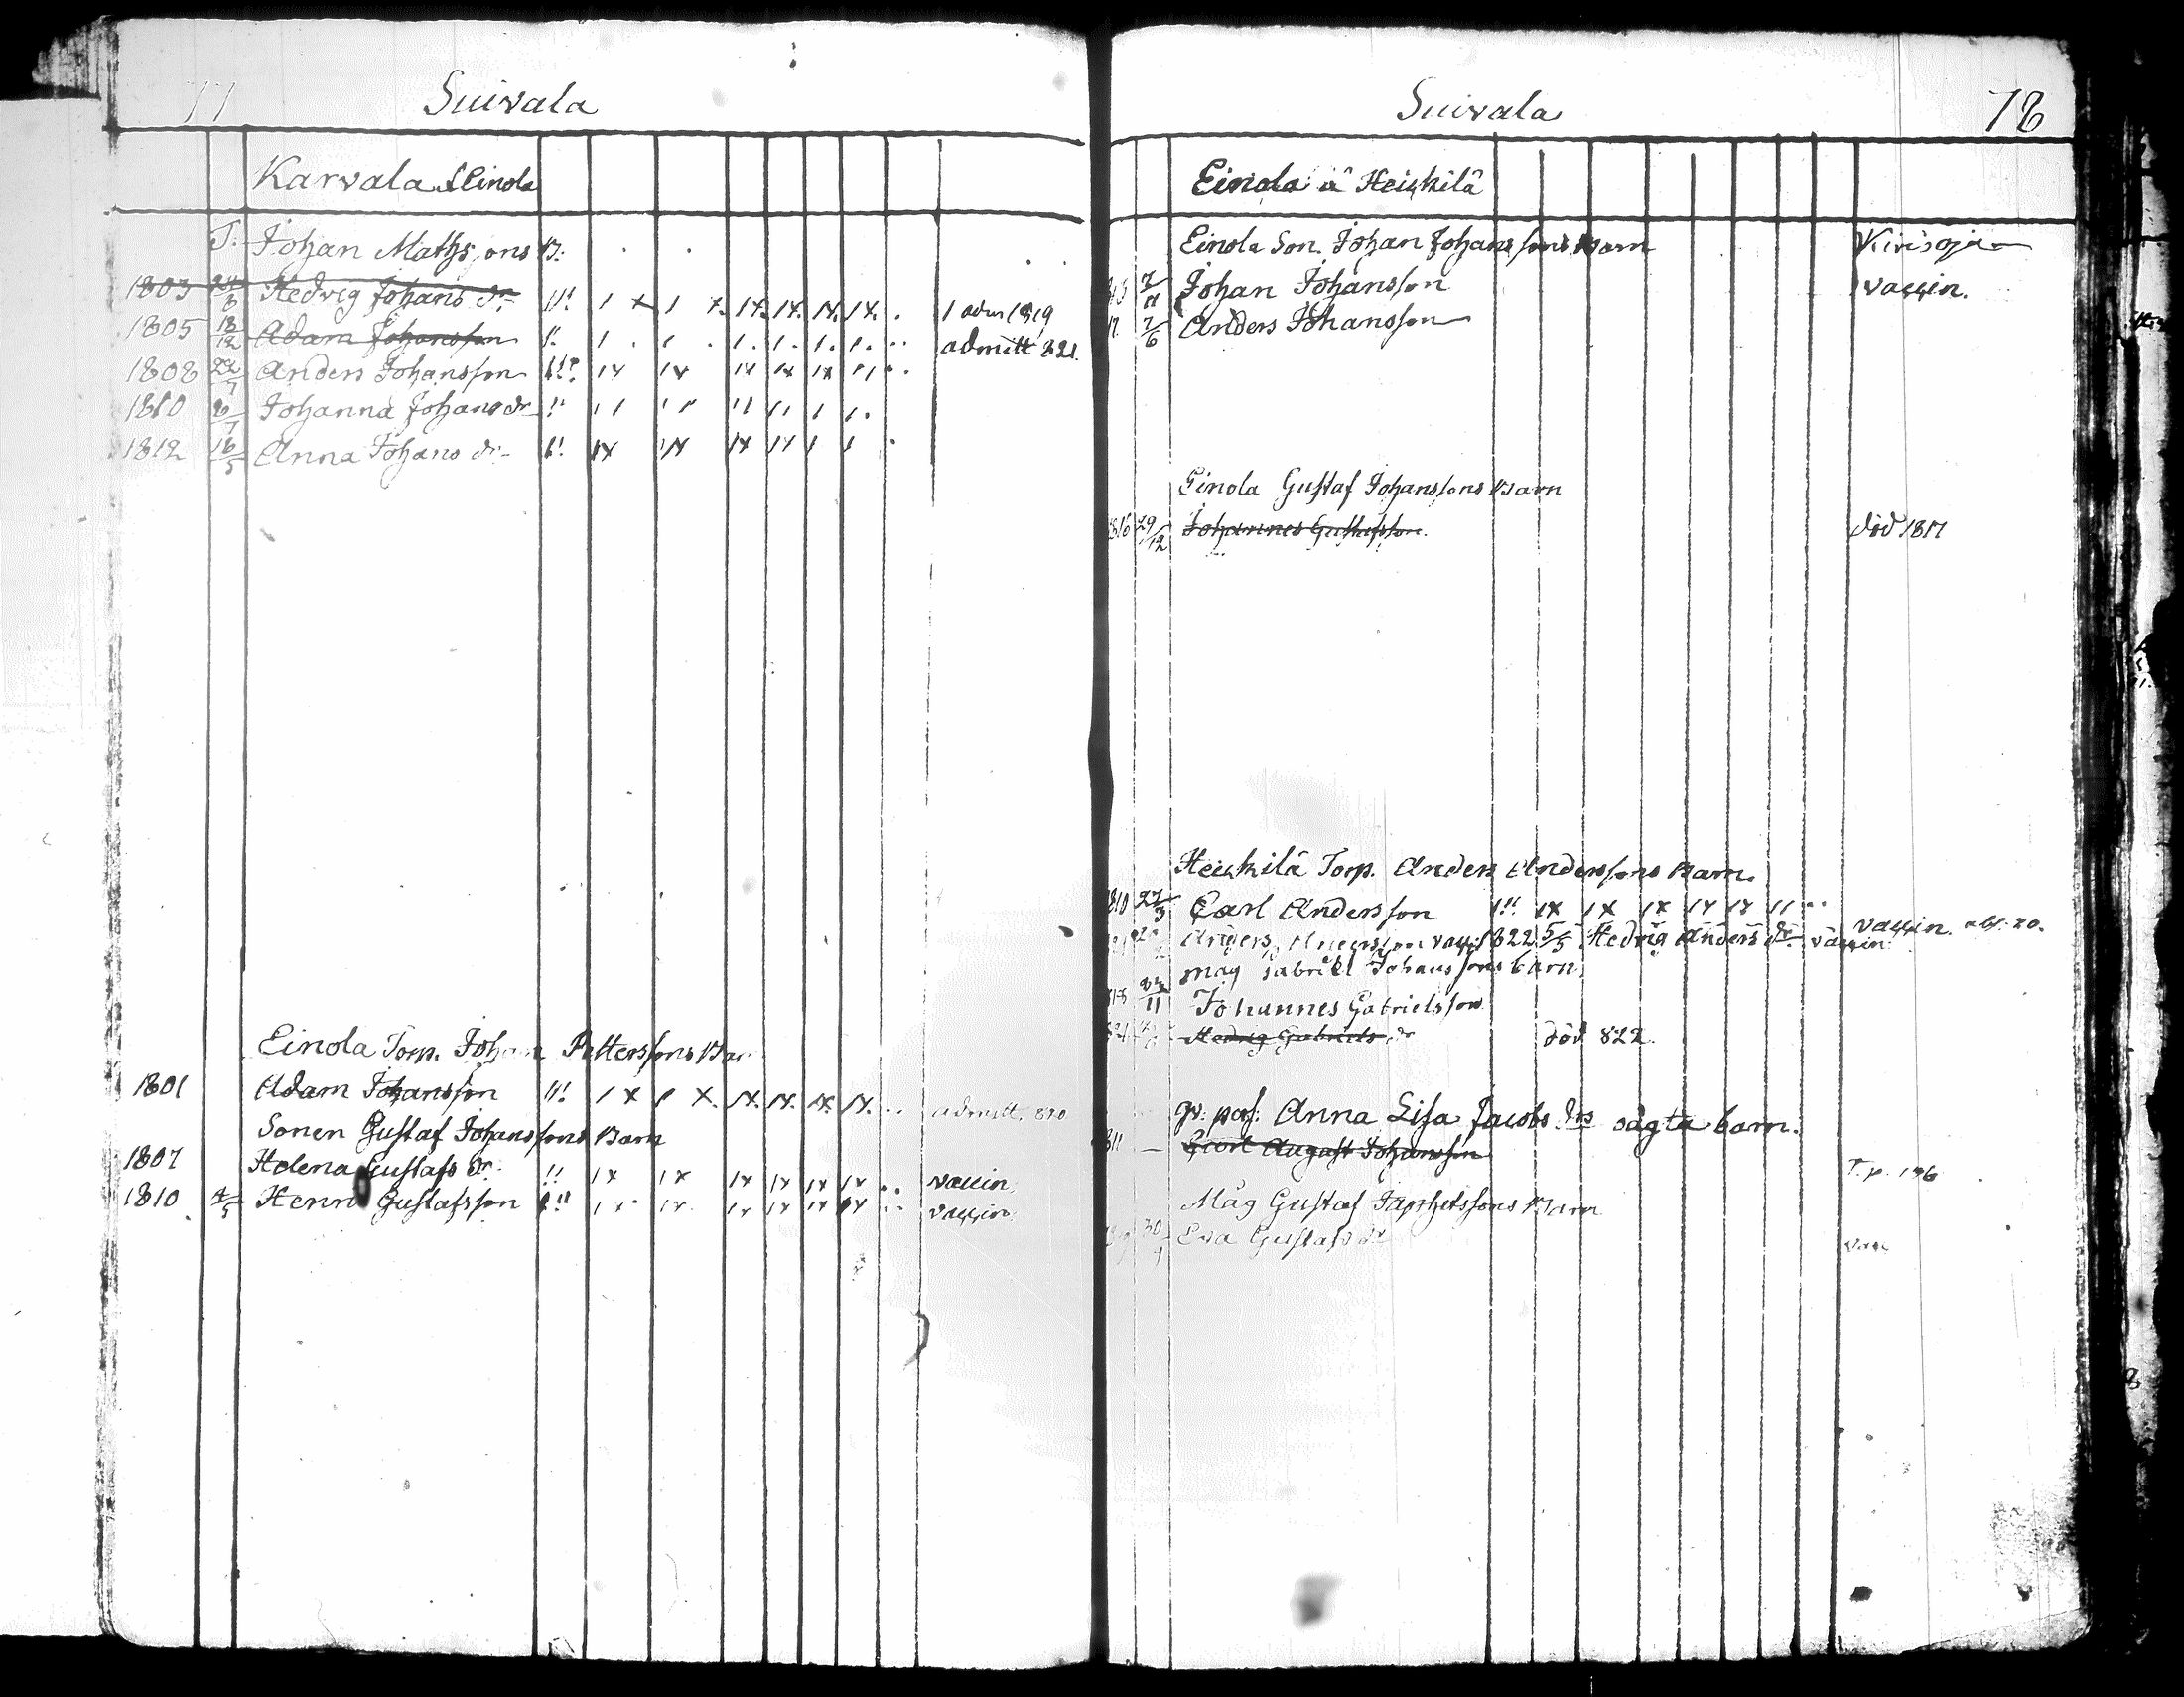 77 Suivala
Karvala & Einola
T. Johan Mathssons B:
1803 24/6 Hedvig Johans dr 1 adm 1819
1805 18/12 Adam Johansson admitt 821.
1808 Anders Johansson
1810 Johanna Johans dr
1812 16/5 Anna Johans dr
Einola Torp. Johan Pettersons Bar
1801 Adam Johansson admitt. 820
Sonen Gustaf Johanssons Barn
1807 Helena Gustafs dr. vaccin.
1810 4/5 Henri Gustafsson vaccin.
Suivala 78
Einola å Heickilä
Einola Son. Johan Johanssons Barn
7/11 Johan Johansson vaccin.
17. 7/6 Anders Johansson
Einola Gustaf Johanssons Barn
1816 29/12 Johannes Gustafsson. död 1817
Heickilä Torp. Anders Anderssons Barn.
1810 27/3 Carl Andersson vaccin. abs. 20.
Anders Andersson vacc: 1822 5/5 Hedvig Anders dr. vaccin
mag Gabriel Johanssons barn
11 Johannes Gabrielsson
Hedvig Gabriels dr död 822.
Anna Lisa Jacobs drs oägta barn.
811 — Carl August Johansson
Måg Gustaf Japhetssons Barn
30 Eva Gustafs dr vacc